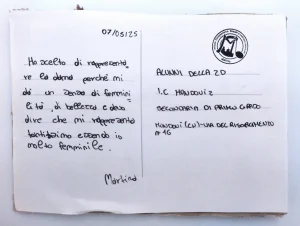 07/03/25
Ho scelto di rappresenta
re la donna perché mi
dà un senso di femmini
lità, di bellezza e devo
dire che mi rappresenta
tantissimo essendo io
molto femminile.
Martina
ALUNNI DELLA 2D
I.C. MANDONI 2
SECONDARIA DI PRIMO GRADO